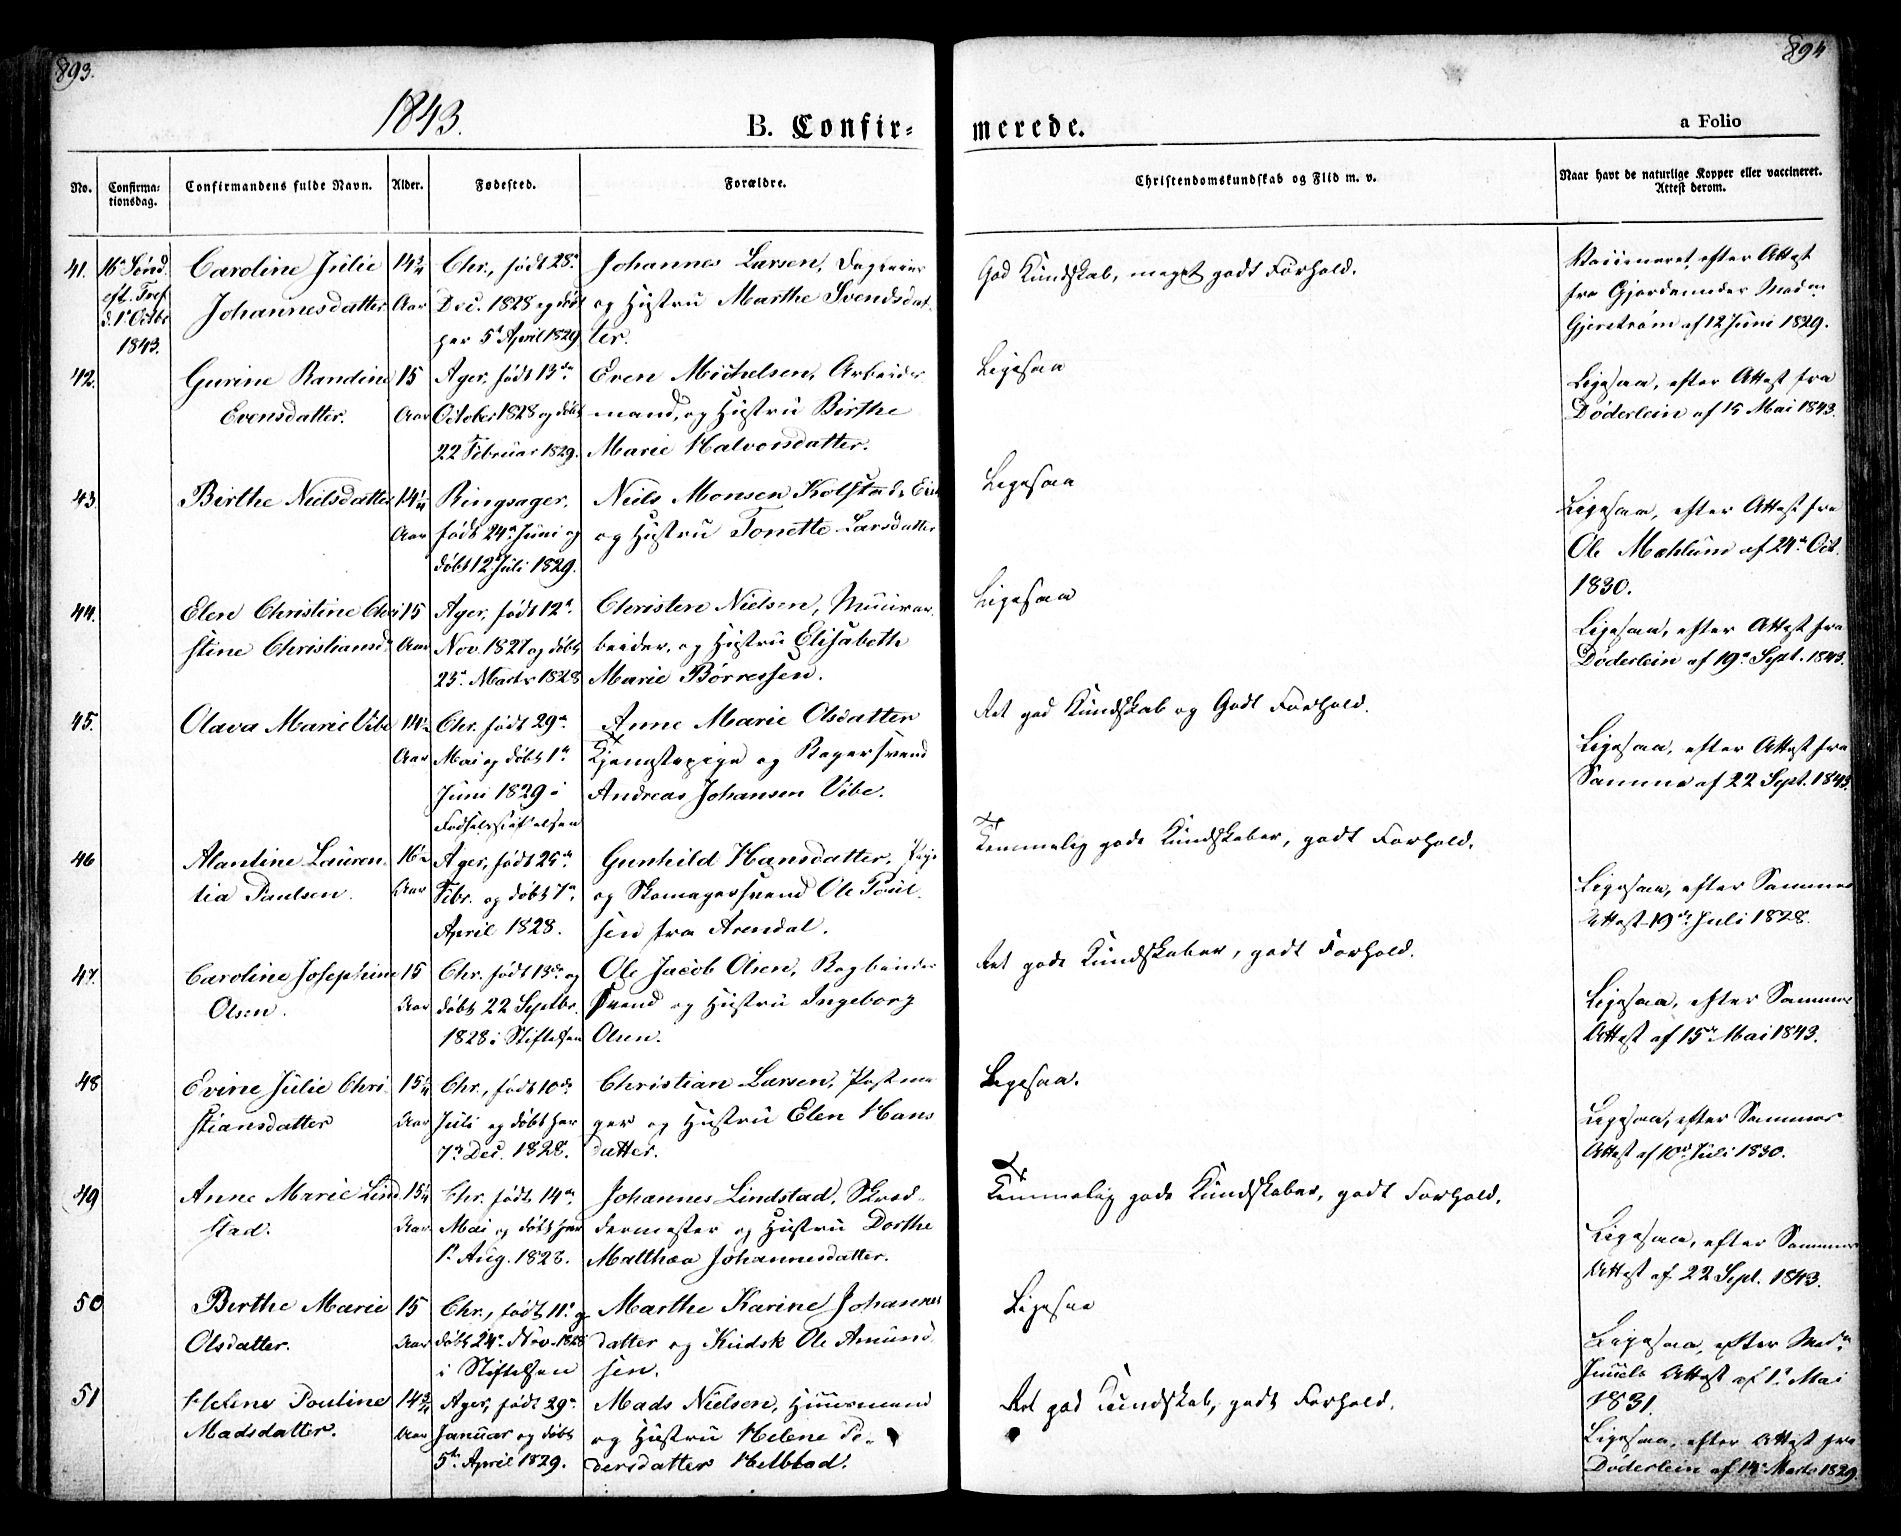 893.
894
1843.
B. Confir-
merede.
a Folio
No.
Confirma-
tionsdag.
Confirmandens fulde Navn.
Alder.
Fødested.
Forældre.
Christendomskundskab og Flid m. v.
Naar havt de naturlige Kopper eller vaccineret.
Attest derom.
41.
16de Sønd.
eft. Tref
d. 1. Octbr
1843.
Caroline Julie
Johannesdatter
14¾
Aar
Chr., født 28.
Dec. 1828 og døbt
her 5t April 1829
Johannes Larsen,
og Hustru Marthe Svendsdat-
ter.
God Kundskab, meget godt Forhold.
Vaccineret, efter Attest
fra Gjordemoder Mad.
af 12 Juni 1829.
42.
Gurine Randine
Evensdatter.
15
Aar
Ager, født 13de
October 1828 og døbt
22 Februar 1829.
Even Michelsen, Arbeids
mand, og Hustru Birthe
Marie Halvorsdatter.
Ligesaa
Ligesaa, efter Attest fra
Döderlein af 15 Mai 1843.
43
Birthe Neilsdatter
14¼
Aar
Ringsager,
født 24. Juni og
døbt 12 Juli 1829.
Neils Monsen Kolstad,
og Hustru Tonette Larsdatter
Ligesaa
Ligesaa, efter Attest fra
Ole Mæhlum af 24. Oct.
1830.
44.
Elen Christine Chri
stine Christiansd
15
Aar
Ager, født 12.
Nov. 1827 og døbt
23. Marts 1828
Christen Nielsen, Muurar
beider, og Hustru Elisabeth
Marie Børresen.
Ligesaa
Ligesaa, efter Attest fra
Döderlein af 19. Sept. 1843.
45.
Olava Marie Vibe
14½
Aar
Chr. født 29.
Mai og døbt 1.
Juni 1829 i
Fødselsstiftelsen
Anne Marie Olsdatter
Tjenestepige og Bagersvend
Andreas Johansen Vibe.
Ret god Kundskab og Godt Forhold.
Ligesaa, efter Attest fra
Samme af 22 Sept. 1843
46
Alantine Lauren
tia Paulsen.
16½
Aar
Ager, født 25.
Febr. og døbt 7.
April 1828.
Gunhild Hansdatter, Pige
og Skomagersvend Ole Poul
sen fra Arendal.
Temmelig gode Kundskaber, godt Forhold.
Ligesaa, efter Sammes
Attest 19. Juli 1828.
47.
Caroline Josephine
Olsen.
15
Aar
Chr. født 13de og
døbt 22 Septbr.
1828 i Stiftelsen
Ole Jacob Olsen, Bogbinder
svend og Hustru Ingeborg
Olsen.
Ret gode Kundskaber, godt Forhold.
Ligesaa, efter Sammes
Attest af 15. Mai 1843.
48
Evine Julie Chri
stiansdatter
15¼
Aar
Chr., født 10de
Juli og døbt her
7. Dec. 1828.
Christian Larsen,
ger og Hustru Elen Hans
datter.
Ligesaa.
Ligesaa, efter Sammes
Attest af 10. Juli 1830.
49
Anne Marie Lind
stad.
15¼
Aar
Chr. født 14.
Mai og døbt her
1. Aug. 1828.
Johannes Lindstad, Skræd-
dermester og Hustru Dorthe
Matthæa Johannesdatter.
Temmelig gode Kundskaber, godt Forhold.
Ligesaa, efter Sammes
Attest af 22 Sept. 1843.
50
Berthe Marie
Olsdatter.
15
Aar
Chr., født 11. og
døbt 24. Nov. 1828
i Stiftelsen
Marthe Karine Johannes
datter og Kudsk Ole Amund
sen.
Ligesaa
Ligesaa, efter Mad.
Attest af 1. Mai
1831.
51
Helene Pouline
Madsdatter.
14¾
Aar
Ager, født 29.
Januar og døbt
5. April 1829.
Mads Nielsen, Huusmand
og Hustru Helene Pe-
dersdatter Helblad.
Ret god Kundskab, godt Forhold.
Ligesaa, efter Attest fra
Döderlein af 14. Marts 1829.